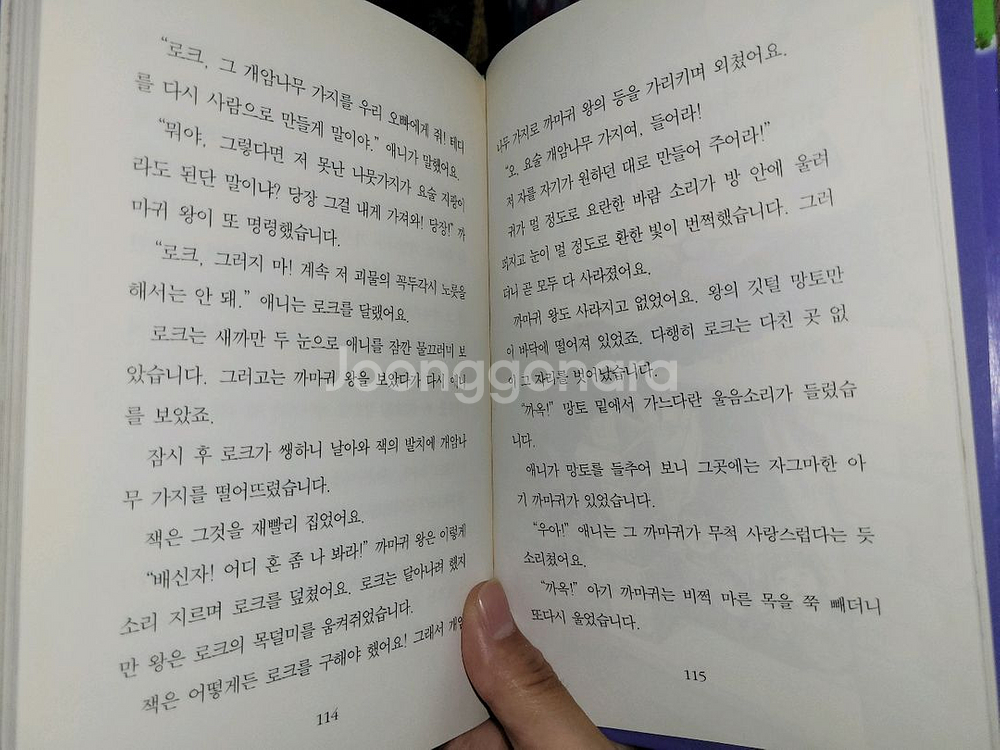 “로크, 그 개암나무 가지를 우리 오빠에게 줘! 테디
를 다시 사람으로 만들게 말이야.” 애니가 말했어요.
“뭐야, 그렇다면 저 못난 나뭇가지가 요술 지팡이
라도 된단 말이냐? 당장 그걸 내게 가져와! 당장!” 까
마귀 왕이 또 명령했습니다.
“로크, 그러지 마! 계속 저 괴물의 꼭두각시 노릇을
해서는 안 돼.” 애니는 로크를 달랬어요.
로크는 새까만 두 눈으로 애니를 잠깐 물끄러미 보
았습니다. 그러고는 까마귀 왕을 보았다가 다시 애니
를 보았죠.
잠시 후 로크가 쌩하니 날아와 잭의 발치에 개암나
무 가지를 떨어뜨렸습니다.
잭은 그것을 재빨리 집었어요.
“배신자! 어디 혼 좀 나 봐라!” 까마귀 왕은 이렇게
소리 지르며 로크를 덮쳤어요. 로크는 달아나려 했지
만 왕은 로크의 목덜미를 움켜쥐었습니다.
잭은 어떻게든 로크를 구해야 했어요! 그래서 개암
114
나무 가지로 까마귀 왕의 등을 가리키며 외쳤어요.
“오, 요술 개암나무 가지여, 들어라!
저 자를 자기가 원하던 대로 만들어 주어라!”
귀가 멀 정도로 요란한 바람 소리가 방 안에 울려
퍼지고 눈이 멀 정도로 환한 빛이 번쩍했습니다. 그러
더니 곧 모두 다 사라졌어요.
까마귀 왕도 사라지고 없었어요. 왕의 깃털 망토만
이 바닥에 떨어져 있었죠. 다행히 로크는 다친 곳 없
이 그 자리를 벗어났습니다.
“까옥!” 망토 밑에서 가느다란 울음소리가 들렸습
니다.
애니가 망토를 들추어 보니 그곳에는 자그마한 아
기 까마귀가 있었습니다.
“우아!” 애니는 그 까마귀가 무척 사랑스럽다는 듯
소리쳤어요.
“까옥!” 아기 까마귀는 비쩍 마른 목을 쭉 빼더니
또다시 울었습니다.
115
Joonggonara